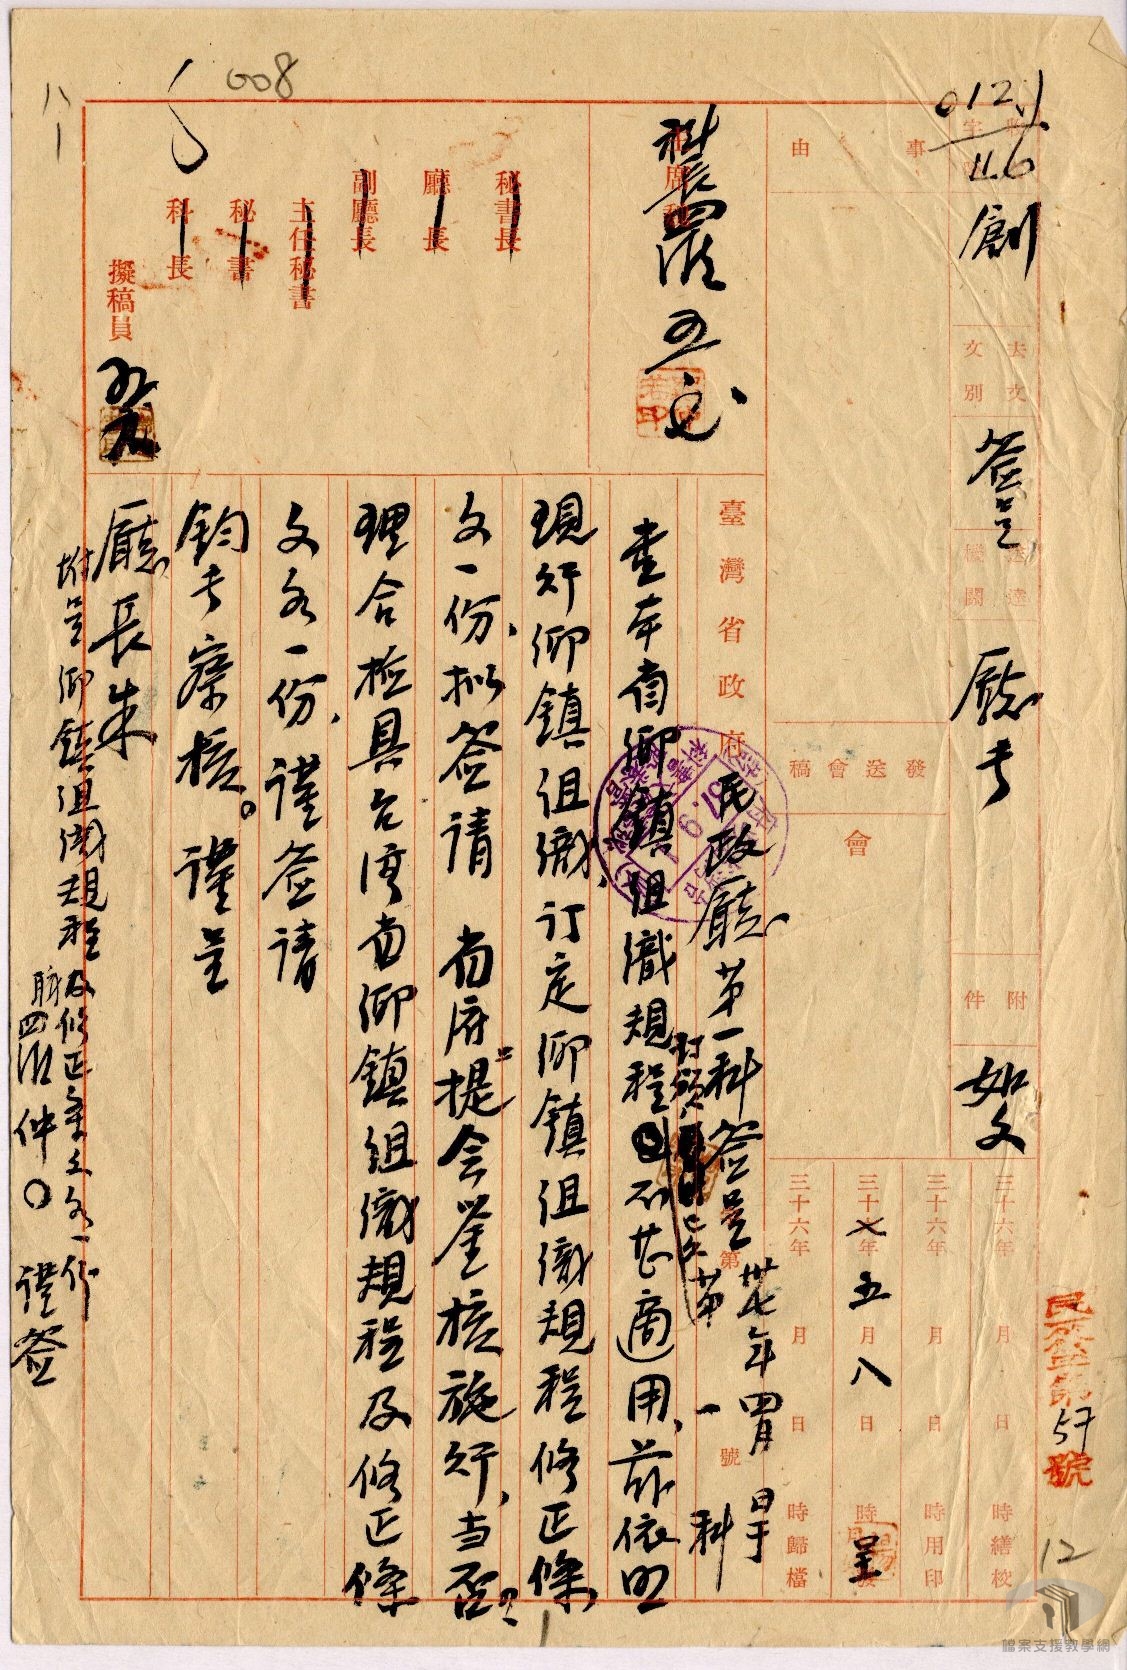 008
012.1
11.6
收
字
創
去文
文別
簽呈
送達
機關
廳長
附件
如文
三十六年 月 日 時繕校
三十六年 月 日 時用印
三十七年五月八日 時呈
三十六年 月 日 時歸檔
民
57
號
12
事由
發送會稿
會
科長
秘書長
廳長
副廳長
主任秘書
秘書
科長
擬稿員
臺灣省政府民政廳第一科簽呈
卅七年四月 日于
第一科
號
37. 9.
查本省鄉鎮組織規程
不甚適用,茲依照
現行鄉鎮組織訂定鄉鎮組織規程修正條
文一份,擬簽請 省府提會鑒核施行,當否?
理合檢具台灣省鄉鎮組織規程及修正條
文各一份,謹簽請
鈞長察核。謹呈
廳長朱
附呈鄉鎮組織規程及修正條文各一份
職 四 仲〇 謹簽
檔案支援教學網